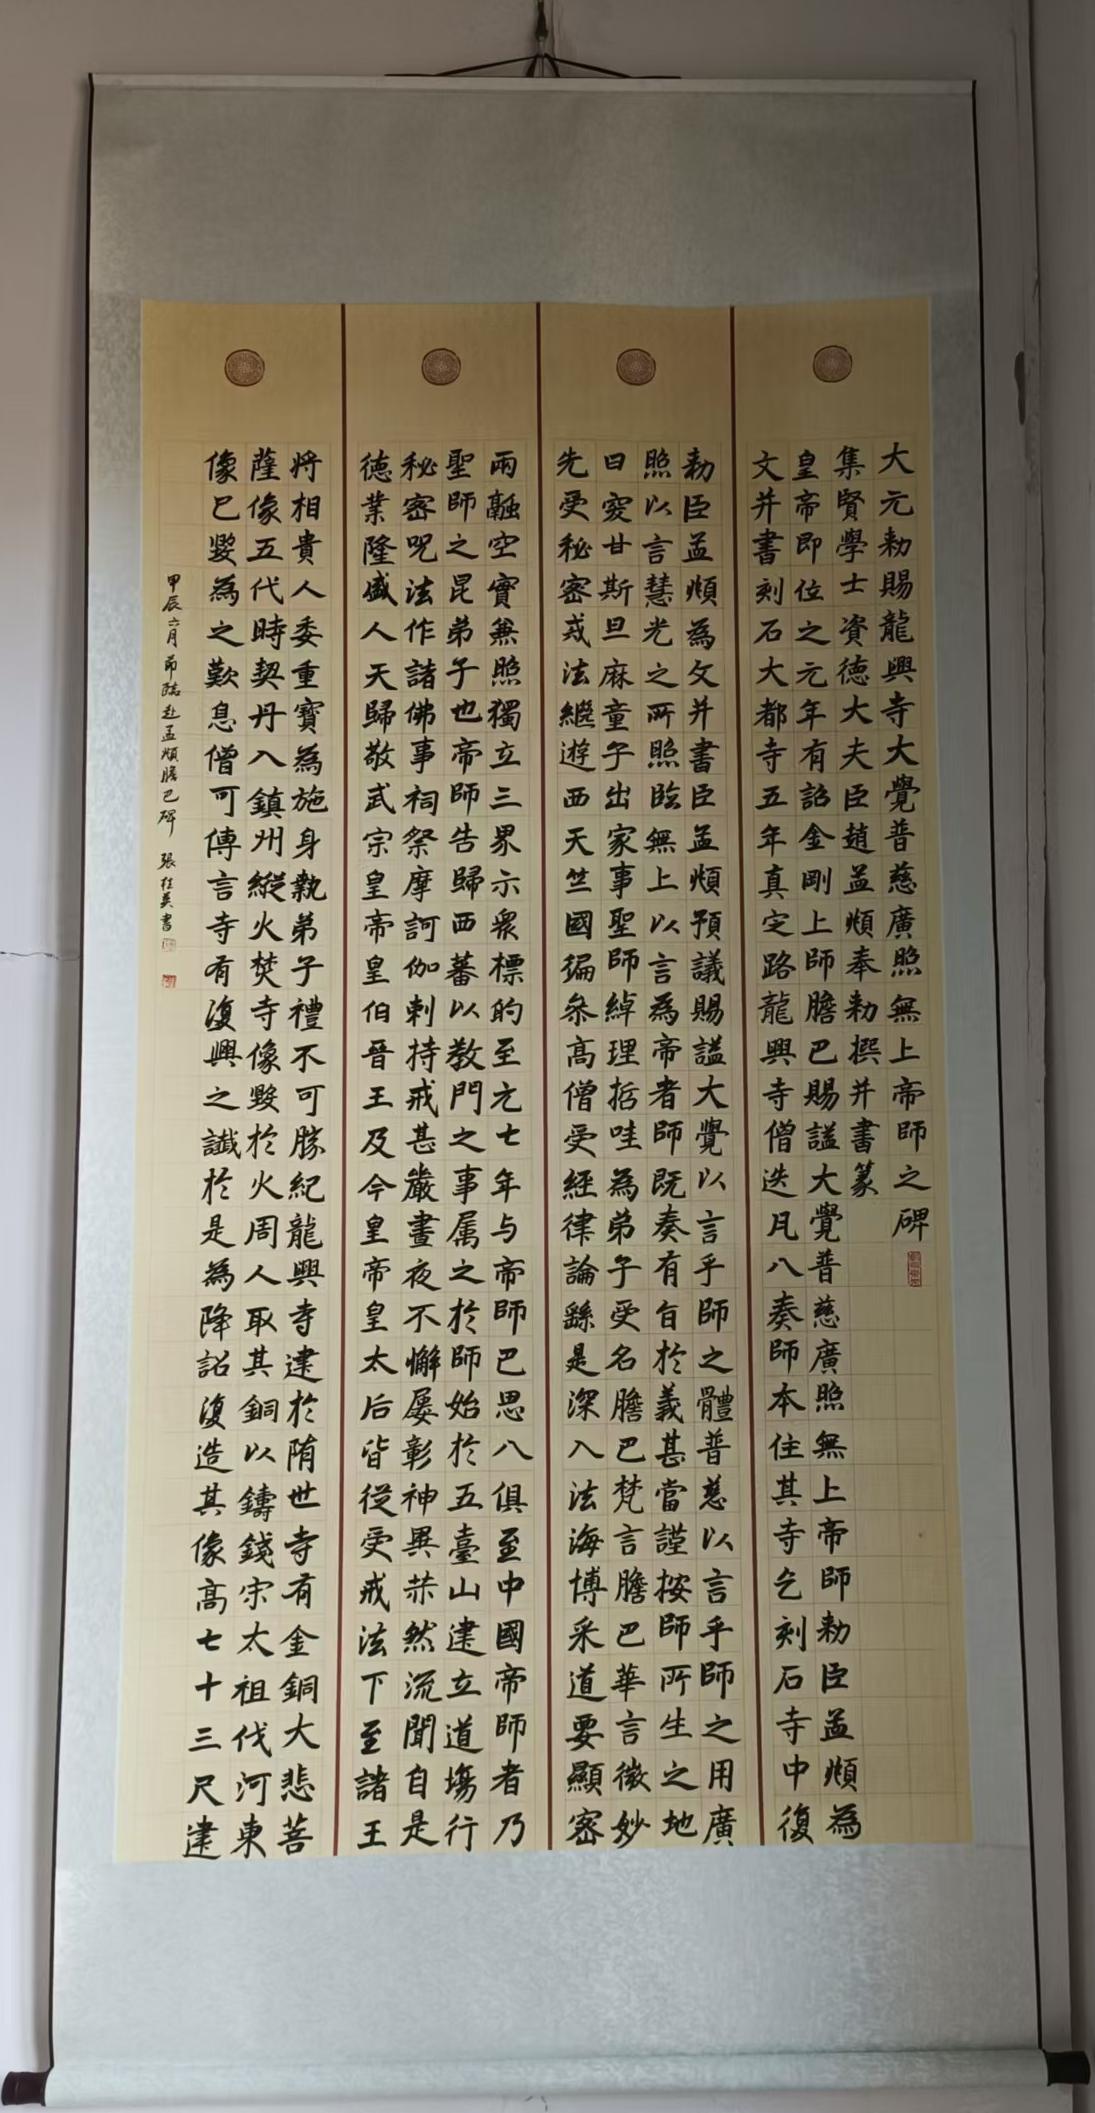 大元勅賜龍興寺大覺普慈廣照無上帝師之碑
集賢學士資德大夫臣趙孟頫奉勅撰并書篆
皇帝即位之元年有詔金剛上師膽巴賜謚大覺普慈廣照無上帝師勅臣孟頫為
文并書刻石大都寺五年真定路龍興寺僧迭凡八奏師本住其寺乞刻石寺中復
勅臣孟頫為文并書臣孟頫預議賜謚大覺以言乎師之體普慈以言乎師之用廣
照以言慧光之所照臨無上以言為帝者師既奏有旨於義甚當謹按師所生之地
曰突甘斯旦麻童子出家事聖師綽理哲哇為弟子受名膽巴梵言膽巴華言微妙
先受秘密戒法繼遊西天竺國徧叅高僧受經律論繇是深入法海博采道要顯密
兩融空實兼照獨立三界示衆標的至元七年与帝師巴思八俱至中國帝師者乃
聖師之昆弟子也帝師告歸西蕃以教門之事属之於師始於五臺山建立道場行
秘密呪法作諸佛事祠祭摩訶伽剌持戒甚嚴晝夜不懈屢彰神異赫然流聞自是
德業隆盛人天歸敬武宗皇帝皇伯晉王及今皇帝皇太后皆從受戒法下至諸王
將相貴人委重寶為施身執弟子禮不可勝紀龍興寺建於隋世寺有金銅大悲菩
薩像五代時契丹入鎮州縱火焚寺像毀於火周人取其銅以鑄錢宋太祖伐河東
像已毀為之歎息僧可傳言寺有復興之讖於是為降詔復造其像高七十三尺建
甲辰六月節臨趙孟頫膽巴碑 張桂英書